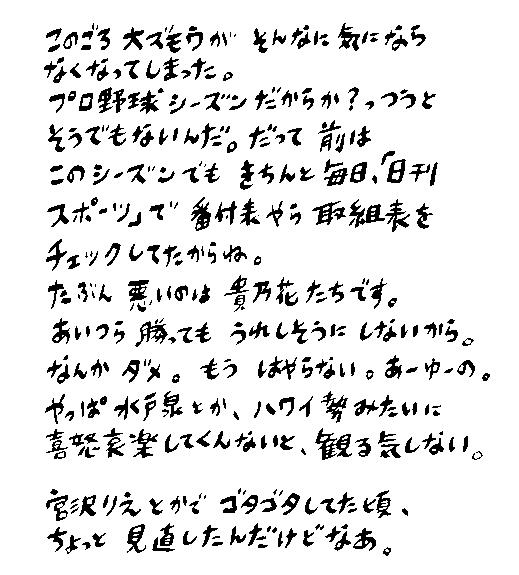 このごろ 大ズモウが そんなに気になら
なくなってしまった。
プロ野球シーズンだからか？っつうと
そうでもないんだ。だって 前は
このシーズンでも きちんと毎日、「日刊
スポーツ」で 番付表やら 取組表を
チェックしてたからね。
たぶん 悪いのは 貴乃花たちです。
あいつら 勝っても うれしそうに しないから。
なんか ダメ。もう はやらない。あーゆーの。
やっぱ 水戸泉とか、ハワイ勢みたいに
喜怒哀楽してくんないと、観る気しない。
宮沢りえとかで ゴタゴタしてた頃、
ちょっと 見直したんだけどなあ。